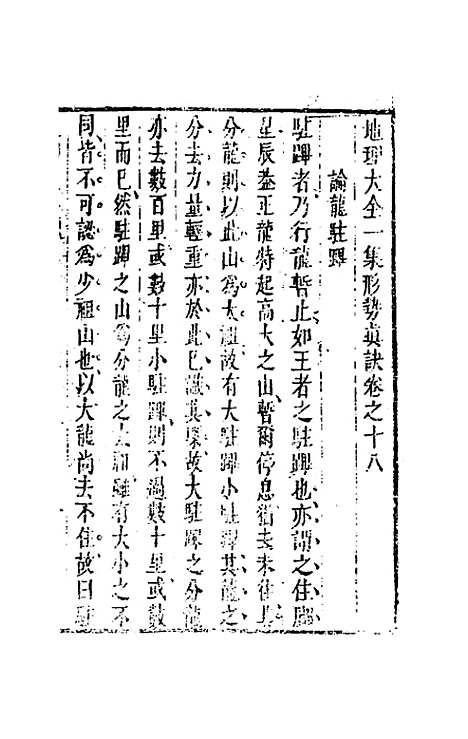 地理大全一集形勢真訣卷之十八
論龍駐蹕
駐蹕者乃行龍暫止如王者之駐蹕也亦謂之住腳
星辰蓋正龍特起高大之山暫爾停息猶去未住其
分龍則以此山為太祖故有大駐蹕小駐蹕其龍之
分去力量輕重亦於此已識其槩故大駐蹕之分龍
亦去數百里或數十里小駐蹕則不過數十里或數
里而已然駐蹕之山為分龍之太祖雖有大小之不
同皆不可認為少祖山也以大龍尚去不住故曰駐